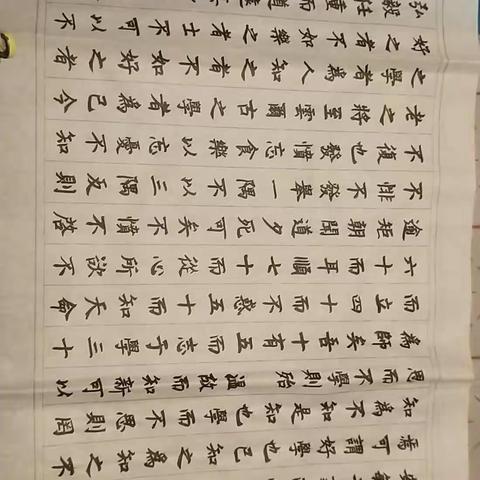 焉可謂好學也已知之為知之不
知為不知是知也學而不思則罔
思而不學則殆溫故而知新可以
為師矣吾十有五而志于學三十
而立四十而不惑五十而知天命
六十而耳順七十而從心所欲不
逾矩朝聞道夕死可矣不憤不啓
不悱不發舉一隅不以三隅反則
不復也發憤忘食樂以忘憂不知
老之將至雲爾古之學者為己今
之學者為人知之者不如好之者
好之者不如樂之者士不可以不
弘毅任重